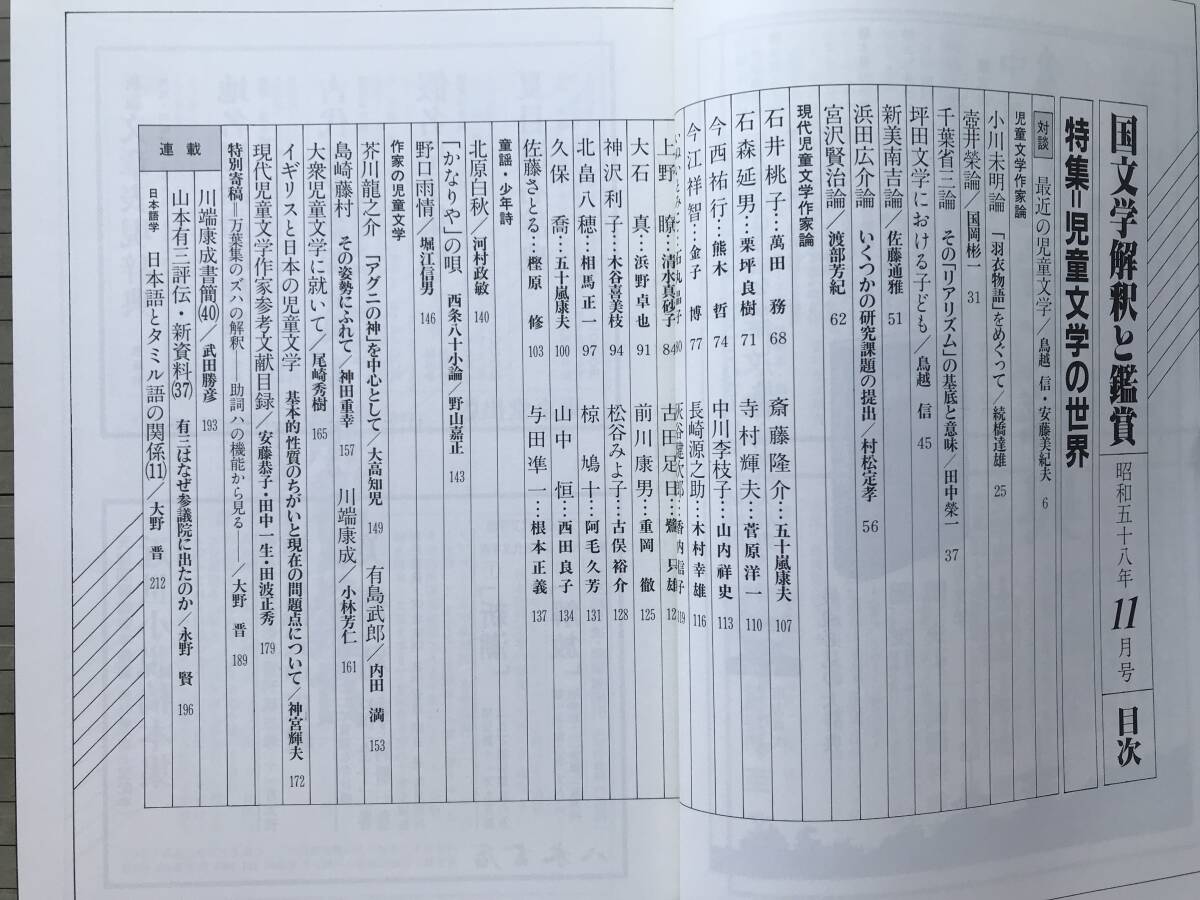 国文学解釈と鑑賞 昭和五十八年11月号 目次
特集＝児童文学の世界
対談 最近の児童文学／鳥越 信・安藤美紀夫 6
児童文学作家論
小川未明論 「羽衣物語」をめぐって／続橋達雄 25
壺井榮論／国岡彬一 31
千葉省三論 その「リアリズム」の基底と意味／田中榮一 37
坪田文学における子ども／鳥越 信 45
新美南吉論／佐藤通雅 51
浜田広介論 いくつかの研究課題の提出／村松定孝 56
宮沢賢治論／渡部芳紀 62
現代児童文学作家論
石井桃子…萬田 務 68
斎藤隆介…五十嵐康夫 107
石森延男…栗坪良樹 71
寺村輝夫…菅原洋一 110
今西祐行…熊木 哲 74
中川李枝子…山内祥史 113
今江祥智…金子 博 77
長崎源之助…木村幸雄 116
119
上野 瞭…清水真砂子 84
古田足日…鷺 只雄 12
大石 真…浜野卓也 91
前川康男…重岡 徹 125
神沢利子…木谷喜美枝 94
松谷みよ子…古俣裕介 128
北畠八穂…相馬正一 97
椋 鳩十…阿毛久芳 131
久保 喬…五十嵐康夫 100
山中 恒…西田良子 134
佐藤さとる…樫原 修 103
与田凖一…根本正義 137
童謡・少年詩
北原白秋／河村政敏 140
「かなりや」の唄 西条八十小論／野山嘉正 143
野口雨情／堀江信男 146
作家の児童文学
芥川龍之介 「アグニの神」を中心として／大高知児 149
有島武郎／内田 満 153
島崎藤村 その姿勢にふれて／神田重幸 157
川端康成／小林芳仁 161
大衆児童文学に就いて／尾崎秀樹 165
イギリスと日本の児童文学 基本的性質のちがいと現在の問題点について／神宮輝夫 172
現代児童文学作家参考文献目録／安藤恭子・田中一生・田波正秀 179
特別寄稿＝万葉集のズハの解釈――助詞ハの機能から見る――／大野 晋 189
連載
川端康成書簡(40)／武田勝彦 193
山本有三評伝・新資料(37) 有三はなぜ参議院に出たのか／永野 賢 196
日本語学 日本語とタミル語の関係(11)／大野 晋 212